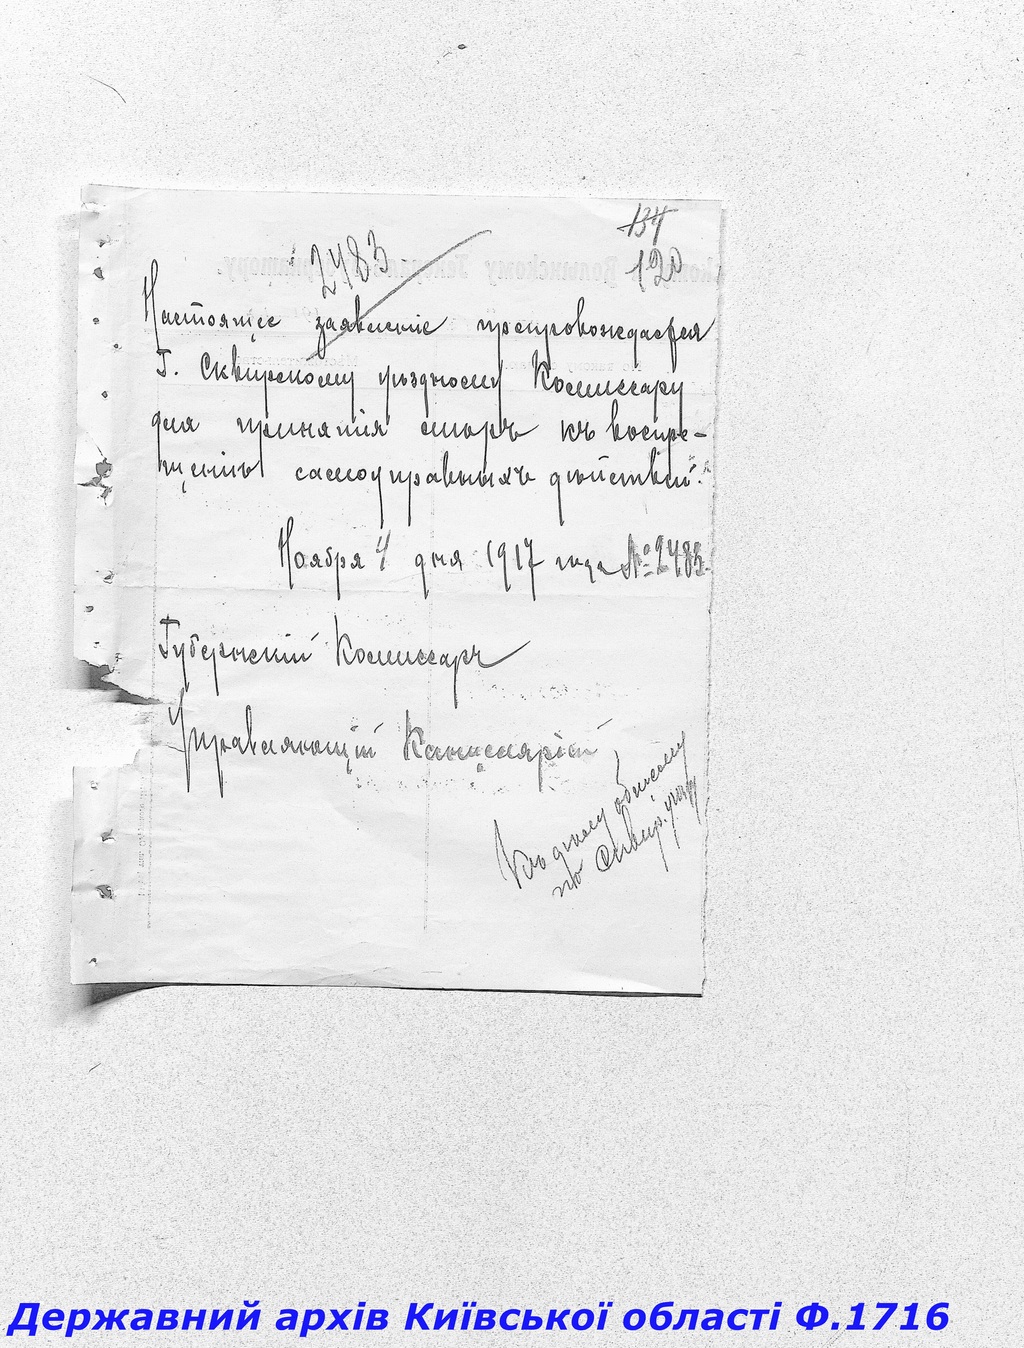 134
120
2483
Настоящее заявленіе препровождается
Г. Сквирскому уѣздному Коммисару
для принятія мѣръ къ воспре-
щенію самоуправныхъ дѣйствій.
Ноября 4 дня 1917 года № 2483.
Губернскій Коммиссаръ
Управляющій Канцеляріей
по Сквир. уѣзду
Державний архів Київської області Ф.1716